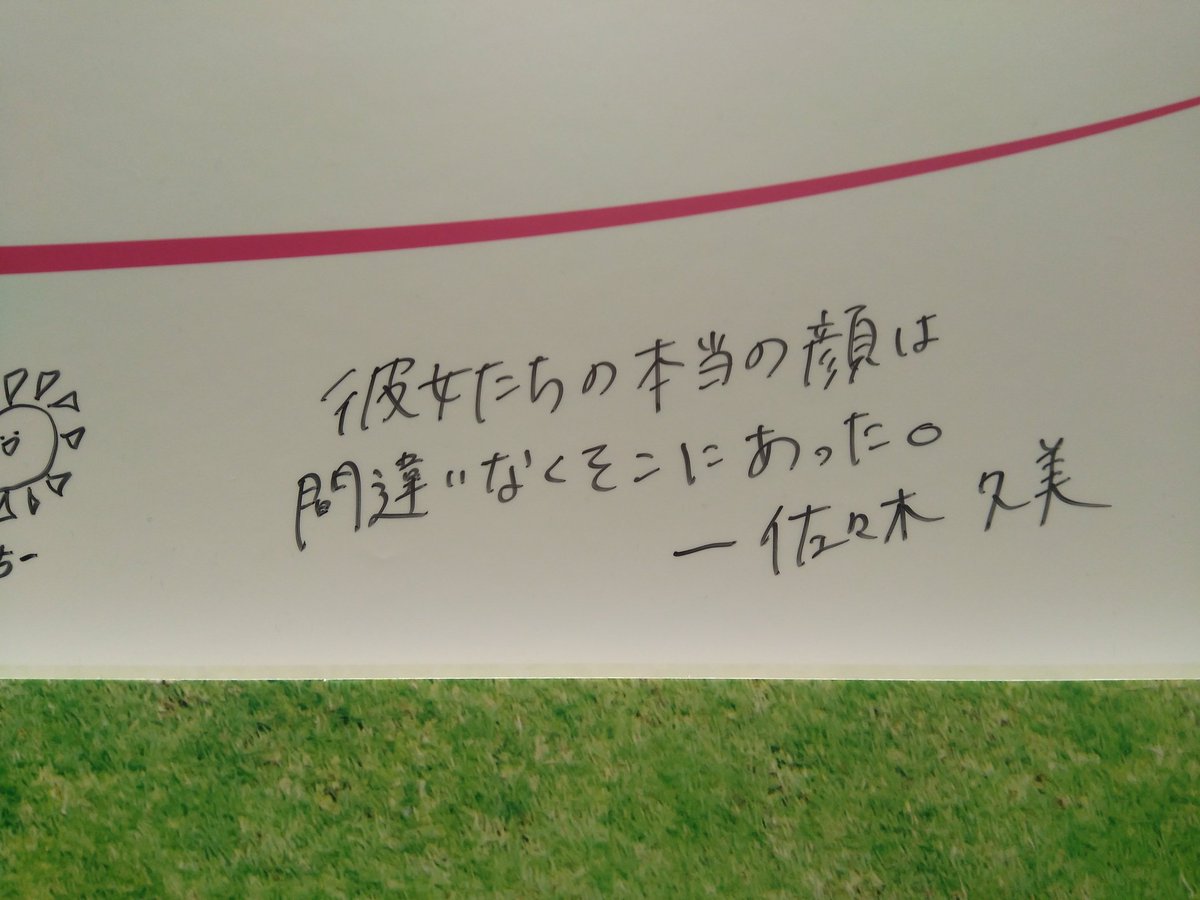 彼女たちの本当の顔は
間違いなくそこにあった。
ー佐々木 久美
ちー